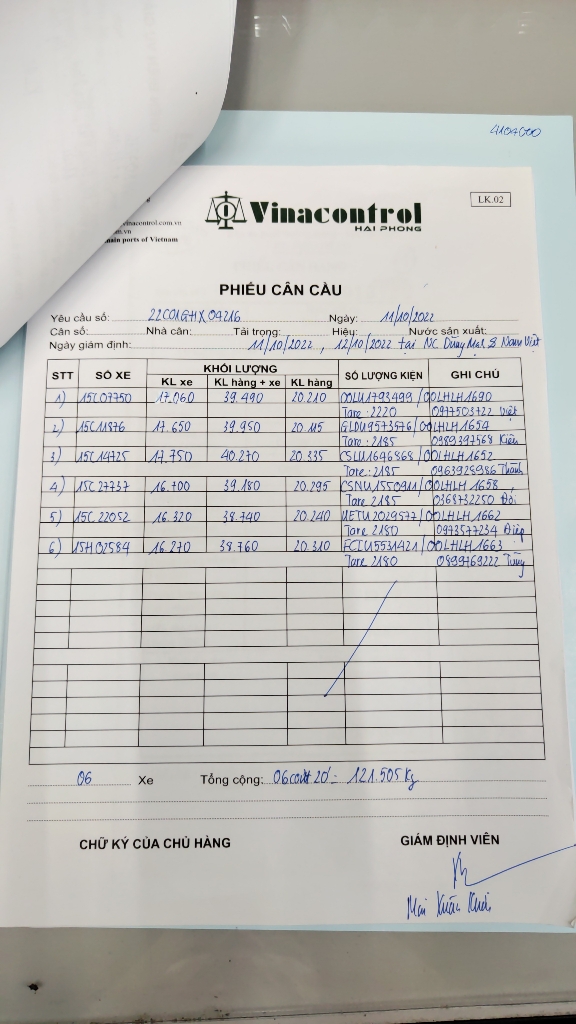 4104600
vinacontrol.com.vn
main ports of Vietnam
Vinacontrol
HAI PHONG
LK.02
PHIẾU CÂN CẦU
Yêu cầu số: 22C01GHX04216 Ngày: 11/10/2022
Cân số: Nhà cân: Tải trọng: Hiệu: Nước sản xuất:
Ngày giám định: 11/10/2022, 12/10/2022 tại NC & Nam Việt
STT SỐ XE KHỐI LƯỢNG SỐ LƯỢNG KIỆN GHI CHÚ
KL xe KL hàng + xe KL hàng
1) 15C07750 17.060 39.490 20.210 OOLU1793499 / OOLHLH1690
Tare: 2220 0977503722 Việt
2) 15C11876 17.650 39.950 20.115 GLDU9573576 / OOLHLH1654
Tare: 2185 0989397568 Kiên
3) 15C14725 17.750 40.270 20.335 CSLU1646868 / OOLHLH1652
Tare: 2185 0963928986 Thành
4) 15C27737 16.700 39.180 20.295 CSNU1550911 / OOLHLH1658
Tare 2185 0368732250
5) 15C22052 16.320 38.740 20.240 UETU2029577 / OOLHLH1662
Tare 2180 0973577234 Điệp
6) 15H02584 16.270 38.760 20.310 FCIU5531421 / OOLHLH1663
Tare 2180 0899769222 Tùng
06 Xe Tổng cộng: 06cont 20' = 121.505 Kg
CHỮ KÝ CỦA CHỦ HÀNG GIÁM ĐỊNH VIÊN
Mai Xuân